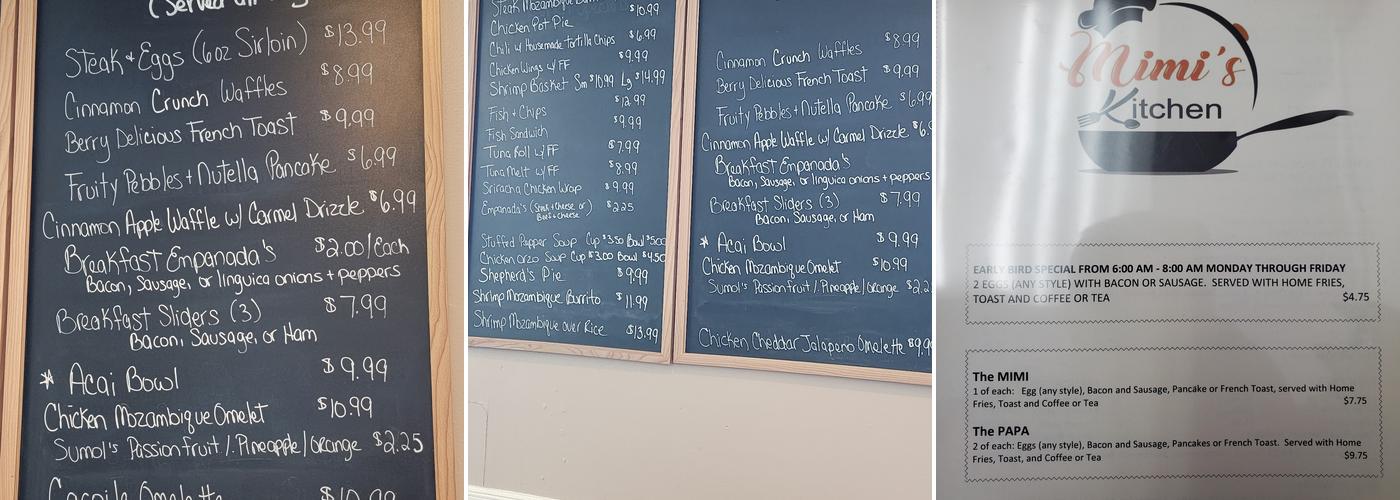 (Served all
Steak + Eggs (6oz Sirloin) $13.99
Cinnamon Crunch Waffles $8.99
Berry Delicious French Toast $9.99
Fruity Pebbles + Nutella Pancake $6.99
Cinnamon Apple Waffle w/ Carmel Drizzle $6.99
Breakfast Empanada's $2.00/Each
Bacon, Sausage, or linguica onions + peppers
Breakfast Sliders (3) $7.99
Bacon, Sausage, or Ham
* Acai Bowl $9.99
Chicken Mozambique Omelet $10.99
Sumol's Passionfruit / Pineapple / Orange $2.25
Omelette $10.99
Steak Mozambique
Chicken Pot Pie $10.99
Chili w/ Housemade Tortilla Chips $6.99
Chicken Wings w/ FF $9.99
Shrimp Basket Sm $10.99 Lg $14.99
Fish + Chips $12.99
Fish Sandwich $9.99
Tuna Roll w/ FF $7.99
Tuna Melt w/ FF $8.99
Sriracha Chicken Wrap $9.99
Empanada's (Steak + Cheese or) $2.25
Beef + Cheese
Stuffed Pepper Soup Cup $3.50 Bowl $5.00
Chicken Orzo Soup Cup $3.00 Bowl $4.50
Shepherd's Pie $9.99
Shrimp Mozambique Burrito $11.99
Shrimp Mozambique over Rice $13.99
Cinnamon Crunch Waffles $8.99
Berry Delicious French Toast $9.99
Fruity Pebbles + Nutella Pancake $6.99
Cinnamon Apple Waffle w/ Carmel Drizzle $6.9
Breakfast Empanada's
Bacon, Sausage, or linguica onions + peppers
Breakfast Sliders (3) $7.99
Bacon, Sausage, or Ham
* Acai Bowl $9.99
Chicken Mozambique Omelet $10.99
Sumol's Passionfruit / Pineapple / Orange $2.2
Chicken, Cheddar Jalapano Omelette $9.9
Mimi's
Kitchen
EARLY BIRD SPECIAL FROM 6:00 AM - 8:00 AM MONDAY THROUGH FRIDAY
2 EGGS (ANY STYLE) WITH BACON OR SAUSAGE. SERVED WITH HOME FRIES,
TOAST AND COFFEE OR TEA $4.75
The MIMI
1 of each: Egg (any style), Bacon and Sausage, Pancake or French Toast, served with Home
Fries, Toast and Coffee or Tea $7.75
The PAPA
2 of each: Eggs (any style), Bacon and Sausage, Pancakes or French Toast. Served with Home
Fries, Toast, and Coffee or Tea $9.75